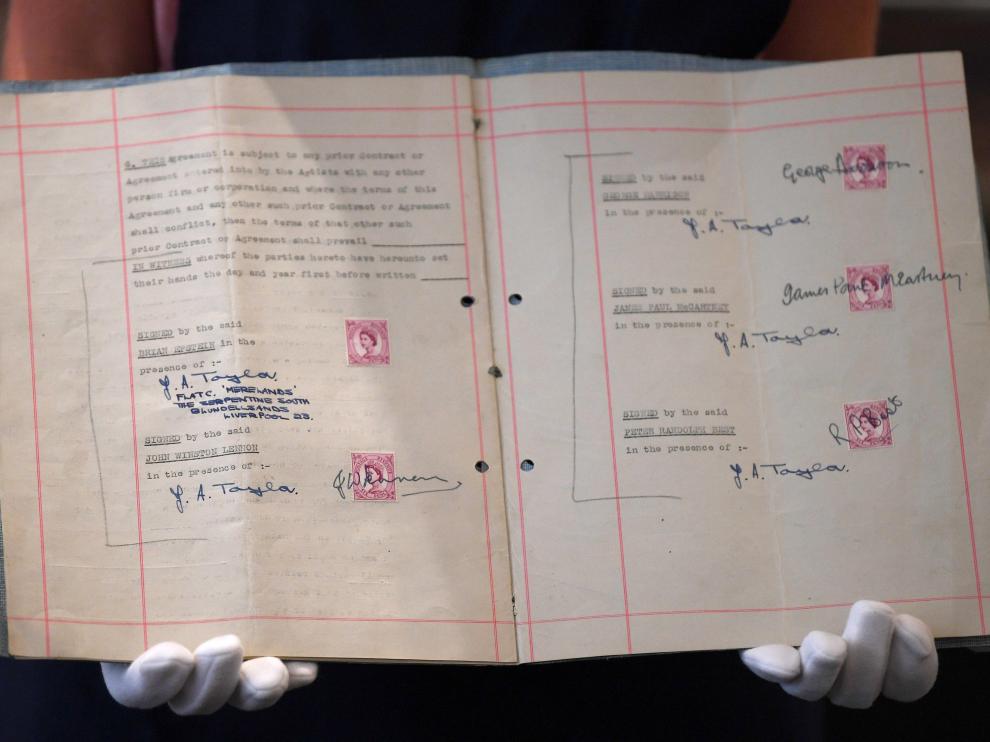 6. THIS Agreement is subject to any prior Contract or
Agreement entered into by the Artists with any other
person firm or corporation and where the terms of this
Agreement and any other such prior Contract or Agreement
shall conflict, then the terms of that other such
prior Contract or Agreement shall prevail
IN WITNESS whereof the parties hereto have hereunto set
their hands the day and year first before written
SIGNED by the said
BRIAN EPSTEIN in the
presence of :-
J. A. Tayla.
FLAT C. 'MERELANDS'
THE SERPENTINE SOUTH
BLUNDELLSANDS
LIVERPOOL 23.
SIGNED by the said
JOHN WINSTON LENNON
in the presence of :-
J. A. Tayla.
J W Lennon
SIGNED by the said
GEORGE HARRISON
in the presence of :-
George Harrison.
J. A. Tayla.
SIGNED by the said
JAMES PAUL McCARTNEY
in the presence of :-
James Paul McCartney.
J. A. Tayla.
SIGNED by the said
PETER RANDOLPH BEST
in the presence of :-
R P Best
J. A. Tayla.